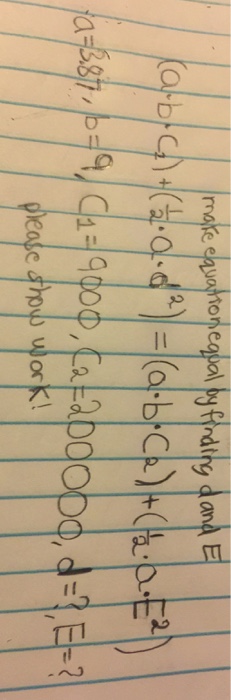 make equation equal by finding d and E
(a·b·C₁)+(½·a·d²)=(a·b·C₂)+(½·a·E²)
·a=3.87, b=9, C₁=9000, C₂=200000, d=?, E=?
please show work!